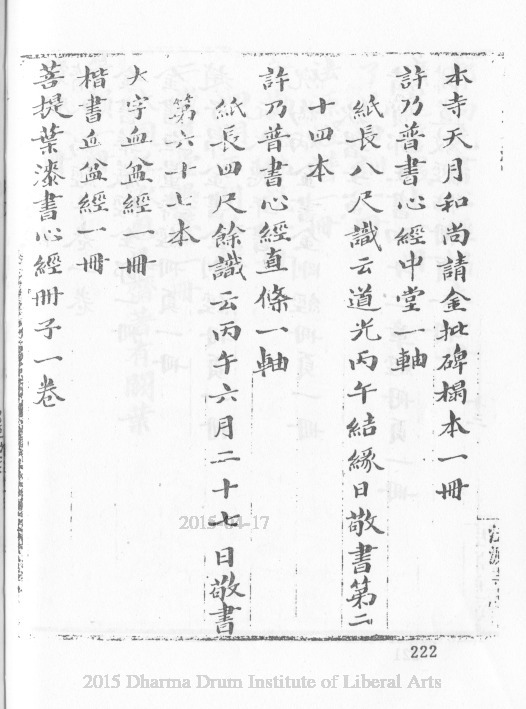 本寺天月和尚請金批碑搨本一冊
許乃普書心經中堂一軸
紙長八尺識云道光丙午結緣日敬書第二
十四本
許乃普書心經直條一軸
紙長四尺餘識云丙午六月二十七日敬書
第六十七本
大字血盆經一冊
楷書血盆經一冊
菩提葉漆書心經冊子一卷
2015-04-17
222
2015 Dharma Drum Institute of Liberal Arts